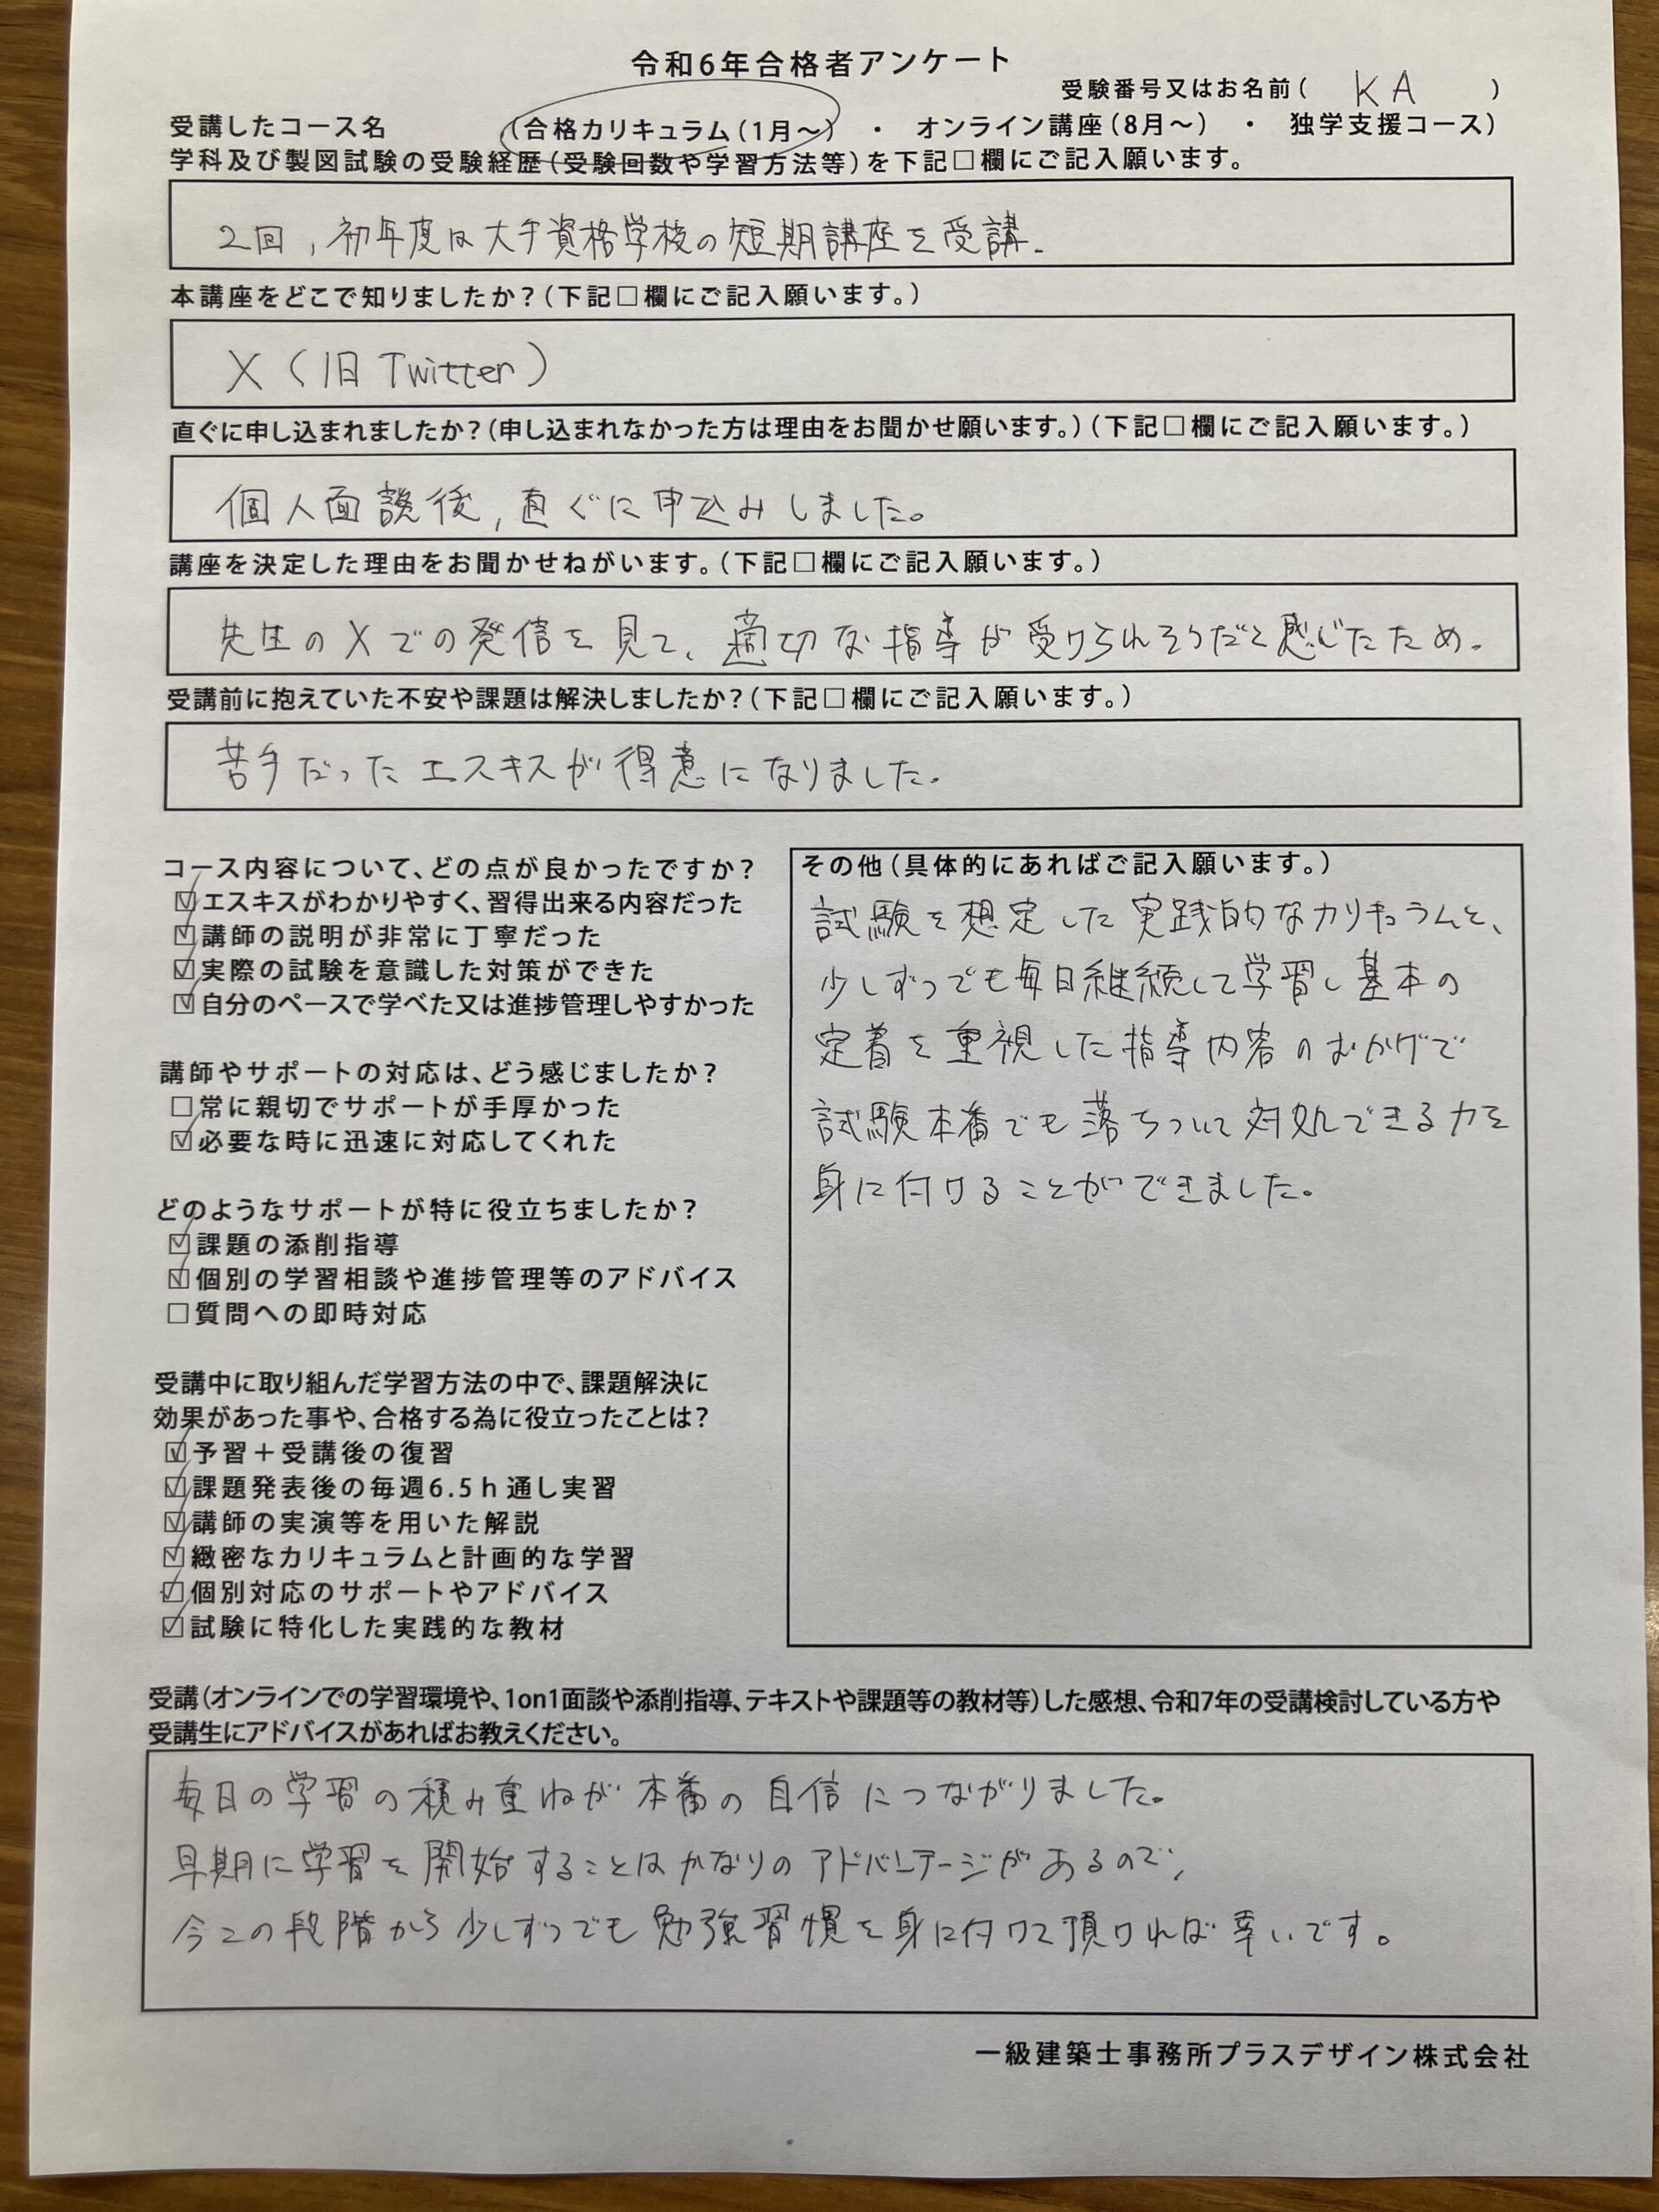 令和6年合格者アンケート
受験番号又はお名前( KA )
受講したコース名 (合格カリキュラム(1月～) ・ オンライン講座(8月～) ・ 独学支援コース)
学科及び製図試験の受験経歴(受験回数や学習方法等)を下記□欄にご記入願います。
2回, 初年度は大手資格学校の短期講座を受講.
本講座をどこで知りましたか?(下記□欄にご記入願います。)
X (旧 Twitter)
直ぐに申し込まれましたか?(申し込まれなかった方は理由をお聞かせ願います。)(下記□欄にご記入願います。)
個人面談後, 直ぐに申込みしました。
講座を決定した理由をお聞かせねがいます。(下記□欄にご記入願います。)
先生のXでの発信を見て、適切な指導が受けられそうだと感じたため.
受講前に抱えていた不安や課題は解決しましたか?(下記□欄にご記入願います。)
苦手だったエスキスが得意になりました.
コース内容について、どの点が良かったですか?
☑エスキスがわかりやすく、習得出来る内容だった
☑講師の説明が非常に丁寧だった
☑実際の試験を意識した対策ができた
☑自分のペースで学べた又は進捗管理しやすかった
講師やサポートの対応は、どう感じましたか?
□常に親切でサポートが手厚かった
☑必要な時に迅速に対応してくれた
どのようなサポートが特に役立ちましたか?
☑課題の添削指導
☑個別の学習相談や進捗管理等のアドバイス
□質問への即時対応
受講中に取り組んだ学習方法の中で、課題解決に
効果があった事や、合格する為に役立ったことは?
☑予習＋受講後の復習
☑課題発表後の毎週6.5h通し実習
☑講師の実演等を用いた解説
☑緻密なカリキュラムと計画的な学習
☑個別対応のサポートやアドバイス
☑試験に特化した実践的な教材
その他(具体的にあればご記入願います。)
試験を想定した実践的なカリキュラムと、
少しずつでも毎日継続して学習し基本の
定着を重視した指導内容のおかげで
試験本番でも落ちついて対処できる力を
身に付けることができました。
受講(オンラインでの学習環境や、1on1面談や添削指導、テキストや課題等の教材等)した感想、令和7年の受講検討している方や
受講生にアドバイスがあればお教えください。
毎日の学習の積み重ねが本番の自信につながりました。
早期に学習を開始することはかなりのアドバンテージがあるので,
今この段階から少しずつでも勉強習慣を身に付けて頂ければ幸いです。
一級建築士事務所プラスデザイン株式会社